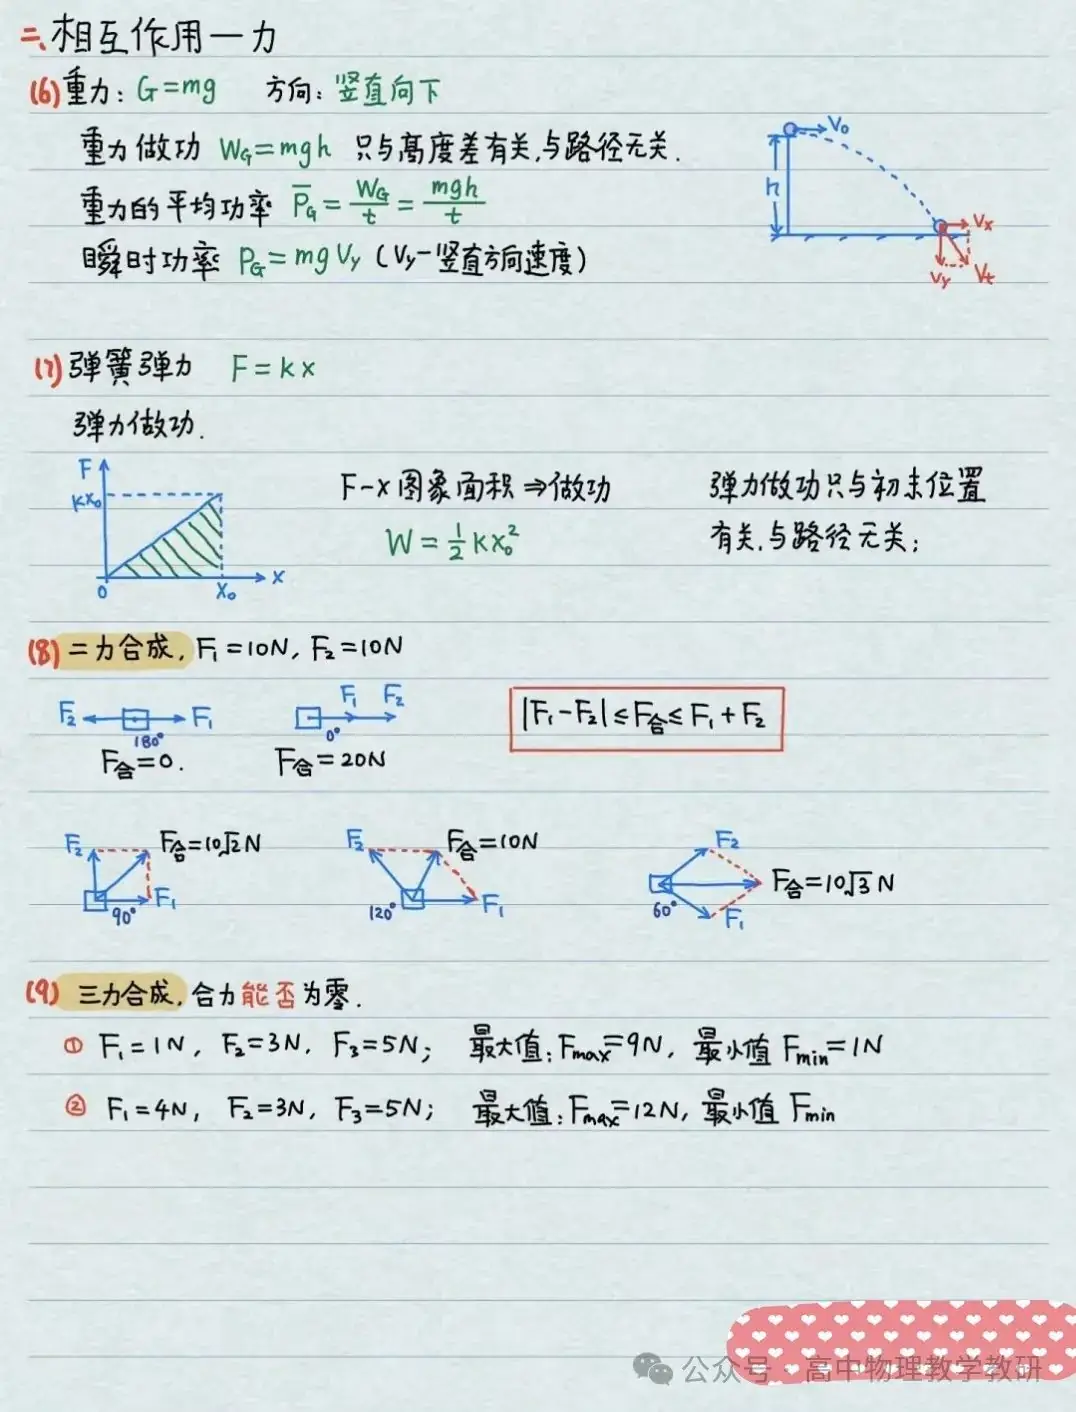 二、相互作用—力
(6)重力：G=mg 方向：竖直向下
重力做功 W_G=mgh 只与高度差有关,与路径无关.
重力的平均功率 P̅_G=W_G/t=mgh/t
瞬时功率 P_G=mgVy (Vy-竖直方向速度)
V₀
h
Vx
Vy
Vt
(7)弹簧弹力 F=kx
弹力做功.
F
kx₀
0
x₀
x
F-x图象面积⇒做功
W=½kx₀²
弹力做功只与初末位置
有关,与路径无关;
(8)二力合成, F₁=10N, F₂=10N
F₂ F₁
180°
F合=0.
F₁ F₂
0°
F合=20N
|F₁-F₂|≤F合≤F₁+F₂
F₂ F合=10√2N
F₁
90°
F₂ F合=10N
120° F₁
F₂
F合=10√3N
60° F₁
(9)三力合成,合力能否为零.
① F₁=1N, F₂=3N, F₃=5N; 最大值:Fmax=9N, 最小值Fmin=1N
② F₁=4N, F₂=3N, F₃=5N; 最大值:Fmax=12N, 最小值Fmin
公众号 高中物理教学教研